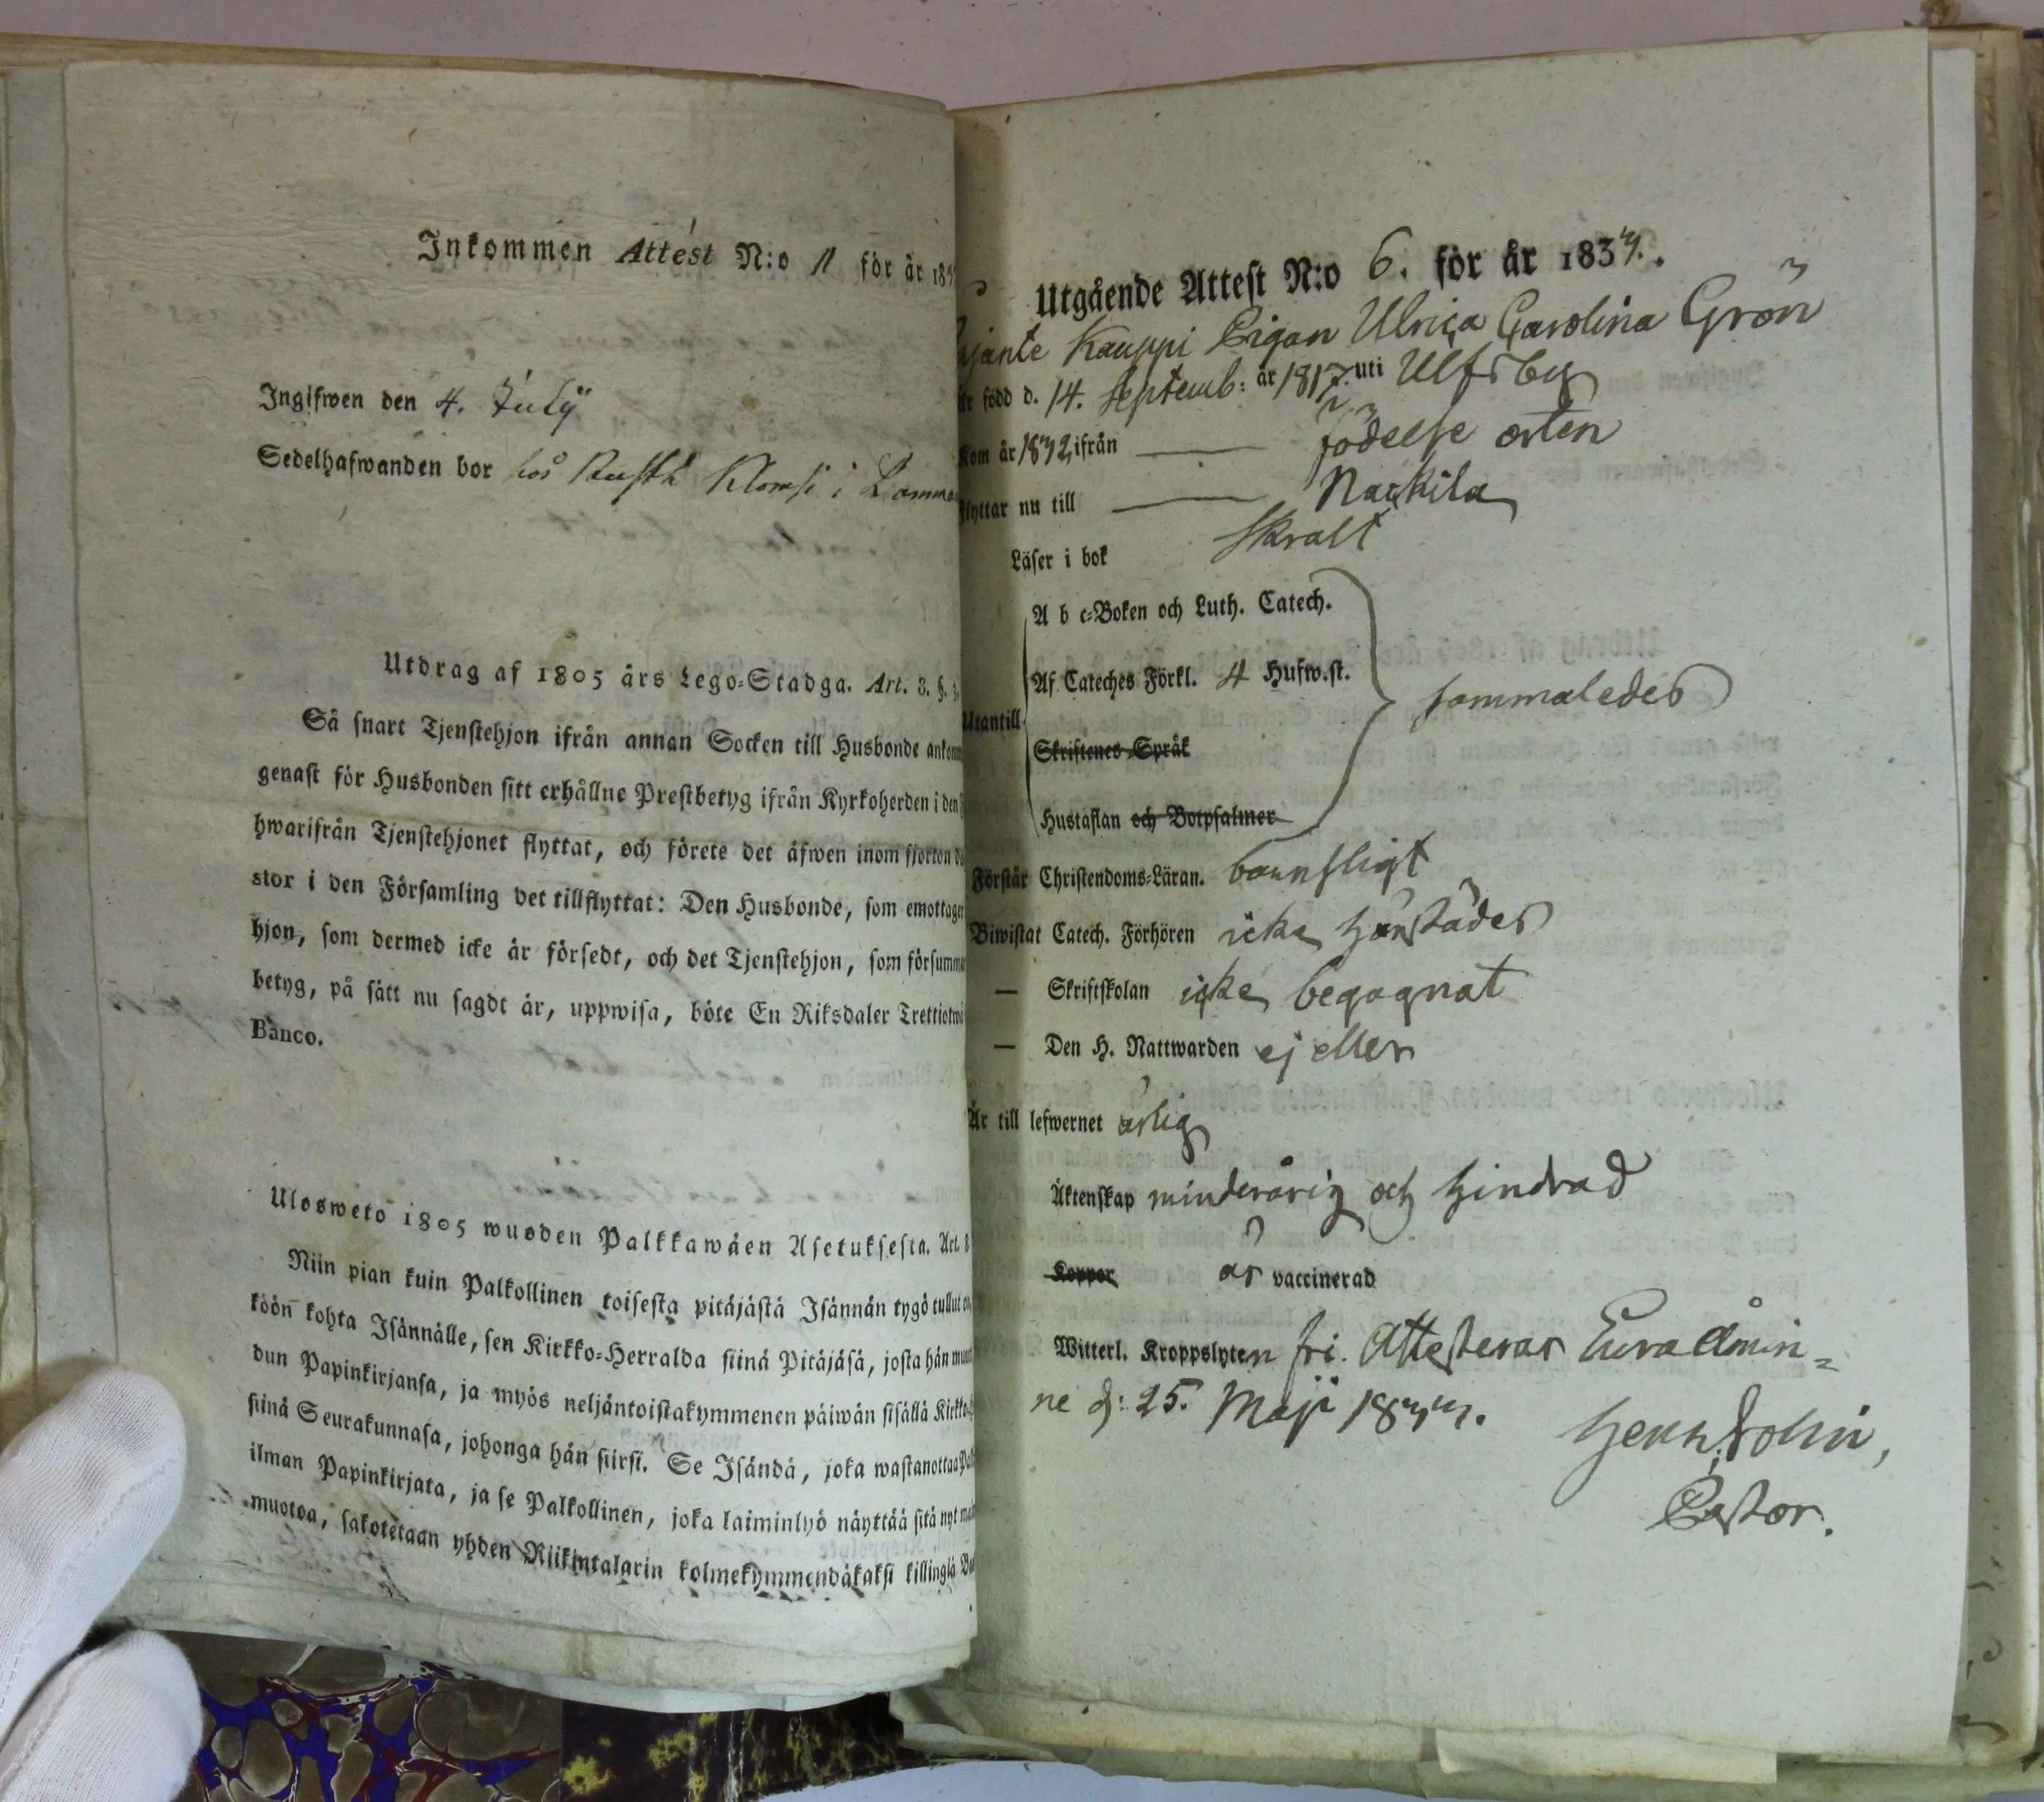 Inkommen Attest N:o 11 för år 183
Ingifwen den 4. July
Sedelhafwanden bor hos Rusth. Klomsi i
Utdrag af 1805 års Lego-Stadga. Art. 8. §.
Så snart Tjenstehjon ifrån annan Socken till Husbonde ankom
genast för Husbonden sitt erhållne Prestbetyg ifrån Kyrkoherden i den
hwarifrån Tjenstehjonet flyttat, och förete det äfwen inom fjorton da
stor i den Församling det tillflyttat: Den Husbonde, som emottager
hjon, som dermed icke är försedt, och det Tjenstehjon, som försumm
betyg, på sätt nu sagdt är, uppwisa, böte En Riksdaler Trettiotwå
Banco.
Ulosweto 1805 wuoden Palkkawäen Asetuksesta. Art. 8
Niin pian kuin Palkollinen toisesta pitäjästä Isännän tygö tullut on,
köön kohta Isännälle, sen Kirkko-Herralda siinä Pitäjäsä, josta hän muut
dun Papinkirjansa, ja myös neljäntoistakymmenen päiwän sisällä Kirkko-
siinä Seurakunnasa, johonga hän siirsi. Se Isändä, joka wastanottaa Pal
ilman Papinkirjata, ja se Palkollinen, joka laiminlyö näyttää sitä nyt ma
muotoa, sakotetaan yhden Riikintalarin kolmekymmendäkaksi killingiä Ba
Utgående Attest N:o 6. för år 1833.
Kauppi Pigan Ulrica Carolina Grön
är född d. 14. Septemb: år 1817. uti Ulfsby
Kom år 1832 ifrån födelse orten
flyttar nu till Nackila
Läser i bok skralt
A b c-Boken och Luth. Catech.
Af Cateches Förkl. 4 Hufw.st. sammaledes
Utantill
Skriftenes Språk
Hustaflan och Botpsalmer
Förstår Christendoms-Läran. barnsligt
Biwistat Catech. Förhören icke härstädes
— Skriftskolan icke begagnat
— Den H. Nattwarden ej eller
Är till lefwernet ärlig
Äktenskap minderårig och hindrad
Koppor är vaccinerad
Witterl. Kroppslyten fri. Attesteras Euraåmin=
ne d: 25. Maji 1833.
Pastor.